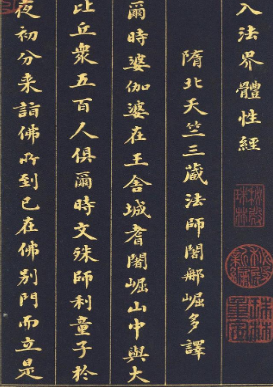 入法界體性經
隋北天竺三藏法師闍那崛多譯
爾時婆伽婆在王舍城耆闍崛山中與大
比丘衆五百人俱爾時文殊師利童子於
夜初分来詣佛所到已在佛別門而立是